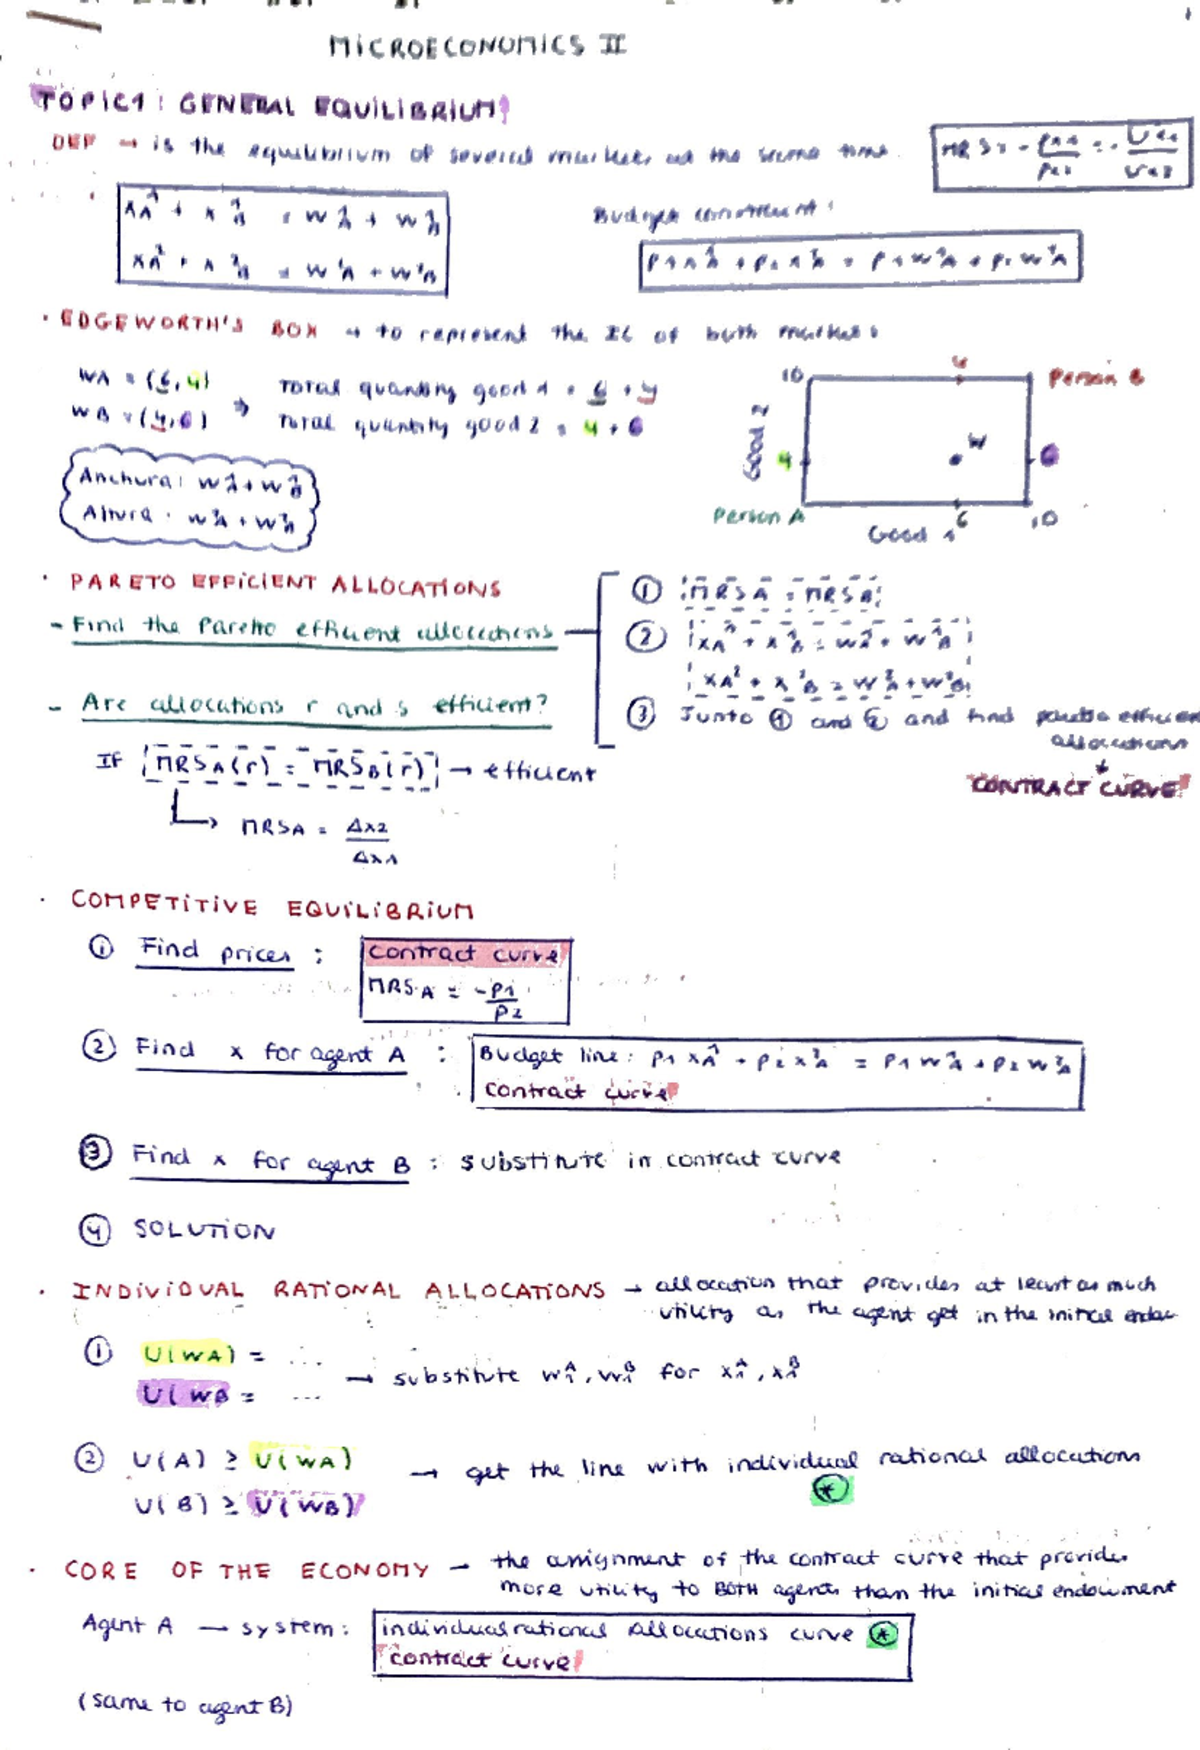 MICROECONOMICS II
TOPIC 1: GENERAL EQUILIBRIUM
DEF → is the equilibrium of several markets at the same time.
MRS = - P1 / P2 = - Ux1 / Ux2
x¹A + x¹B = w¹A + w¹B
Budget constraint:
x²A + x²B = w²A + w²B
p1 x¹A + p2 x²A = p1 w¹A + p2 w²A
· EDGEWORTH'S BOX → to represent the IC of both markets
WA = (6, 4) ⇒ Total quantity good 1 = 6 + 4
WB = (4, 6) Total quantity good 2 = 4 + 6
10 4 Person B
Good 2
4 W 6
Person A 6 10
Good 1
Anchura: w¹A + w¹B
Altura: w²A + w²B
· PARETO EFFICIENT ALLOCATIONS
① MRSA = MRSB
- Find the Pareto efficient allocations
② x¹A + x¹B = w¹A + w¹B
x²A + x²B = w²A + w²B
- Are allocations r and s efficient?
③ Junto ① and ② and find pareto efficient
allocations
↓
CONTRACT CURVE
If MRSA(r) = MRSB(r) → efficient
↳ MRSA = Δx2 / Δx1
· COMPETITIVE EQUILIBRIUM
① Find prices : contract curve
MRSA = - P1 / P2
② Find x for agent A : Budget line: p1 x¹A + p2 x²A = p1 w¹A + p2 w²A
contract curve
③ Find x for agent B : substitute in contract curve
④ SOLUTION
· INDIVIDUAL RATIONAL ALLOCATIONS → allocation that provides at least as much
utility as the agent get in the initial endow
① U(WA) = ...
U(WB = ... → substitute w1ᴬ, w1ᴮ for x1ᴬ, x1ᴮ
② U(A) ≥ U(WA)
U(B) ≥ U(WB) → get the line with individual rational allocations
*
· CORE OF THE ECONOMY → the assignment of the contract curve that provides
more utility to BOTH agents than the initial endowment
Agent A → system: individual rational allocations curve *
contract curve
(same to agent B)